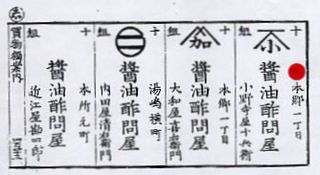 十
組
本郷一丁目
醬油酢問屋
小野寺屋十兵衛
加
本郷一丁目
醬油酢問屋
大和屋吉右衛門
十
組
湯嶋横町
醬油酢問屋
内田屋清右衛門
十
本所元町
醬油酢問屋
組
近江屋勘四郎
買物獨案内